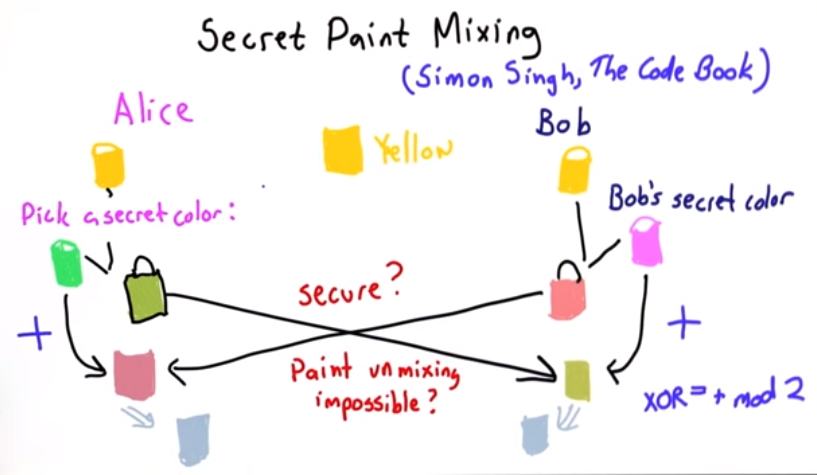 Secret Paint Mixing
(Simon Singh, The Code Book)
Alice
Yellow
Bob
Pick a secret color:
Bob's secret color
secure?
+
+
Paint unmixing
impossible?
XOR = + mod 2